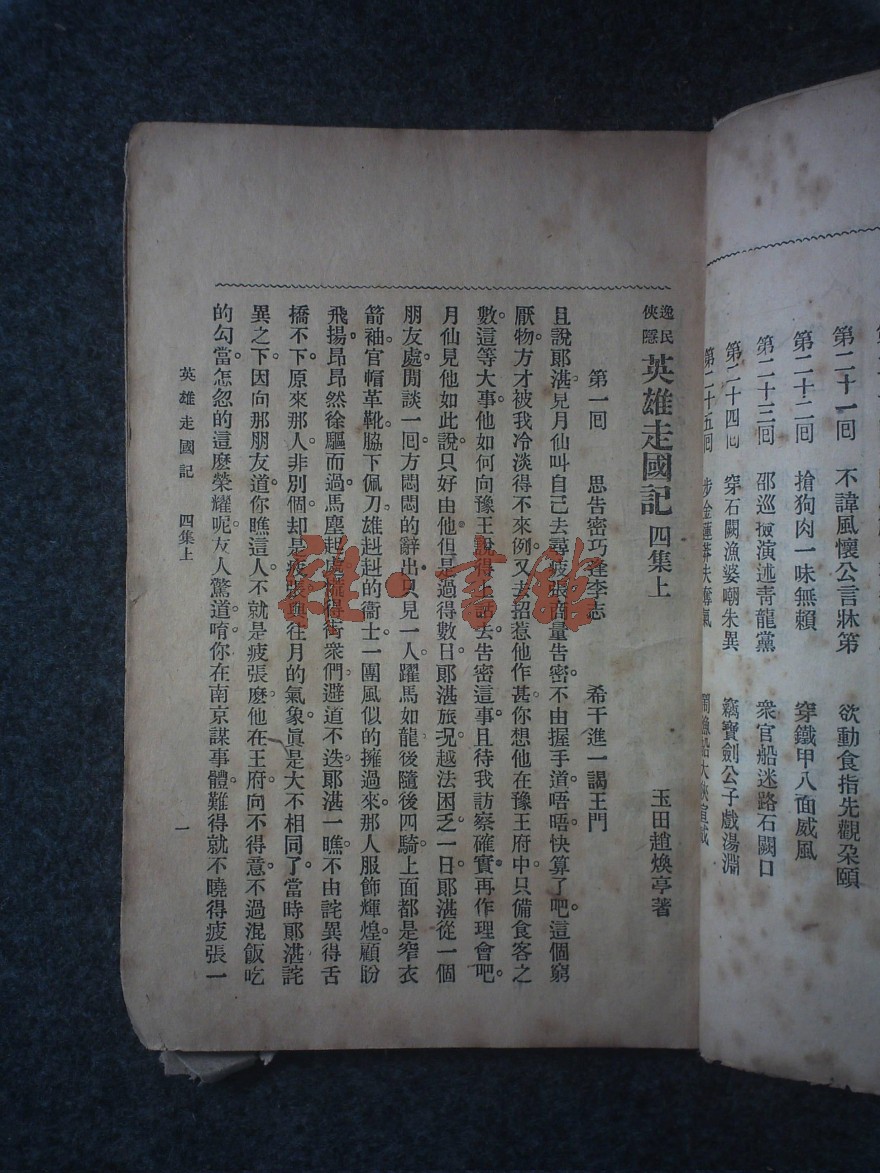 第二十一回　不諱風懷公言牀第　欲動食指先觀朶頤
第二十二回　搶狗肉一味無賴　穿鐵甲八面威風
第二十三回　邵巡撫演述靑龍黨　衆官船迷路石闕口
第二十四回　穿石闕漁婆嘲朱異　竊寶劍公子戲湯淵
第二十五回
逸民俠隱 英雄走國記 四集上　玉田趙煥亭著
第一回　思告密巧逢李志　希干進一謁王門
且說郥湛見月仙叫自己去尋疲張商量告密不由握手道唔唔快算了吧。這個窮
厭物方才被我冷淡得不來例又去招惹他作甚。你想他在豫王府中只備食客之
數。這等大事他如何向豫王說得上話去告密這事且待我訪察確實再作理會吧。
月仙見他如此說只好由他但是過得數日。郥湛旅况越法困乏。一日郥湛從一個
朋友處閒談一回方悶悶的辭出只見一人躍馬如龍後隨後四騎。上面都是窄衣
箭袖。官帽革靴。脇下佩刀雄赳赳的衞士一團風似的擁過來。那人服飾輝煌。顧盼
飛揚昂昂然徐驅而過。馬塵起處慌得街衆們避道不迭。郥湛一瞧不由詫異得舌
撟不下。原來那人非別個却是疲張與往月的氣象眞是大不相同了。當時郥湛詫
異之下。因向那朋友道你瞧這人不就是疲張麽。他在王府向不得意。不過混飯吃
的勾當。怎忽的這麽榮耀呢。友人驚道。唷。你在南京謀事體。難得就不曉得疲張一
英雄走國記　四集上　一
雜·書館